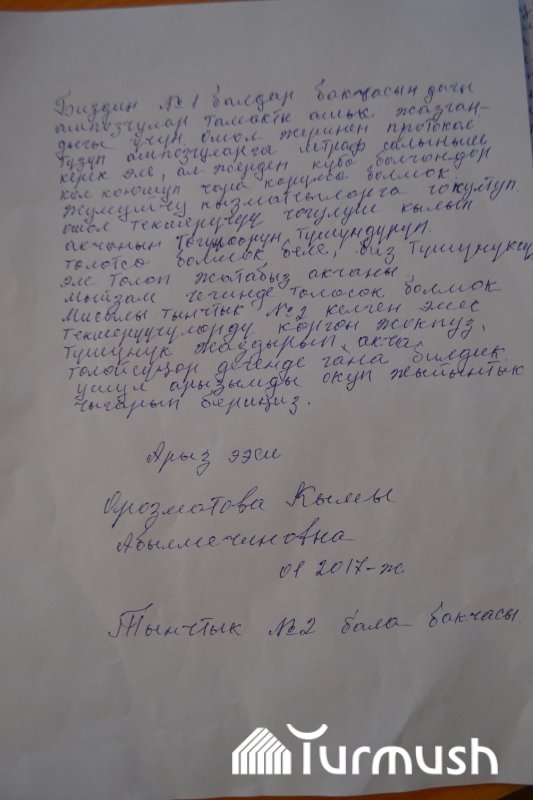 Биздин №1 балдар бакчасындагы
ашпозчулар тамакты ашык жазган-
дыгы үчүн. Ошол жеринен протокол
түзүп ашпозчуларга штраф салыныш
керек эле, ал жерден күбө болгондор
кол коюшуп чара көрүлсө болмок
жумушчу кызматчыларга чогултуп.
ошол текшерүүдү чогулуш кылып
акчанын төгүлөөрүн түшүндүрүп.
төлөтсө болмок беле, биз түшүнүксүз
эле төлөп жатабыз акчаны
мыйзам чегинде төлөсөк болмок.
Мисалы Тынчтык №2 келген эмес
текшерүүчүлөрдү көргөн жокпуз,
түшүнүк жаздырып, акча
төлөйсүңөр дегенде гана билдик.
ушул арызымды окуп жыйынтык
чыгарып бериңиз.
Арыз ээси
Орозматова Кымы
01 2017-ж
Тынчтык №2 бала бакчасы.
Turmush